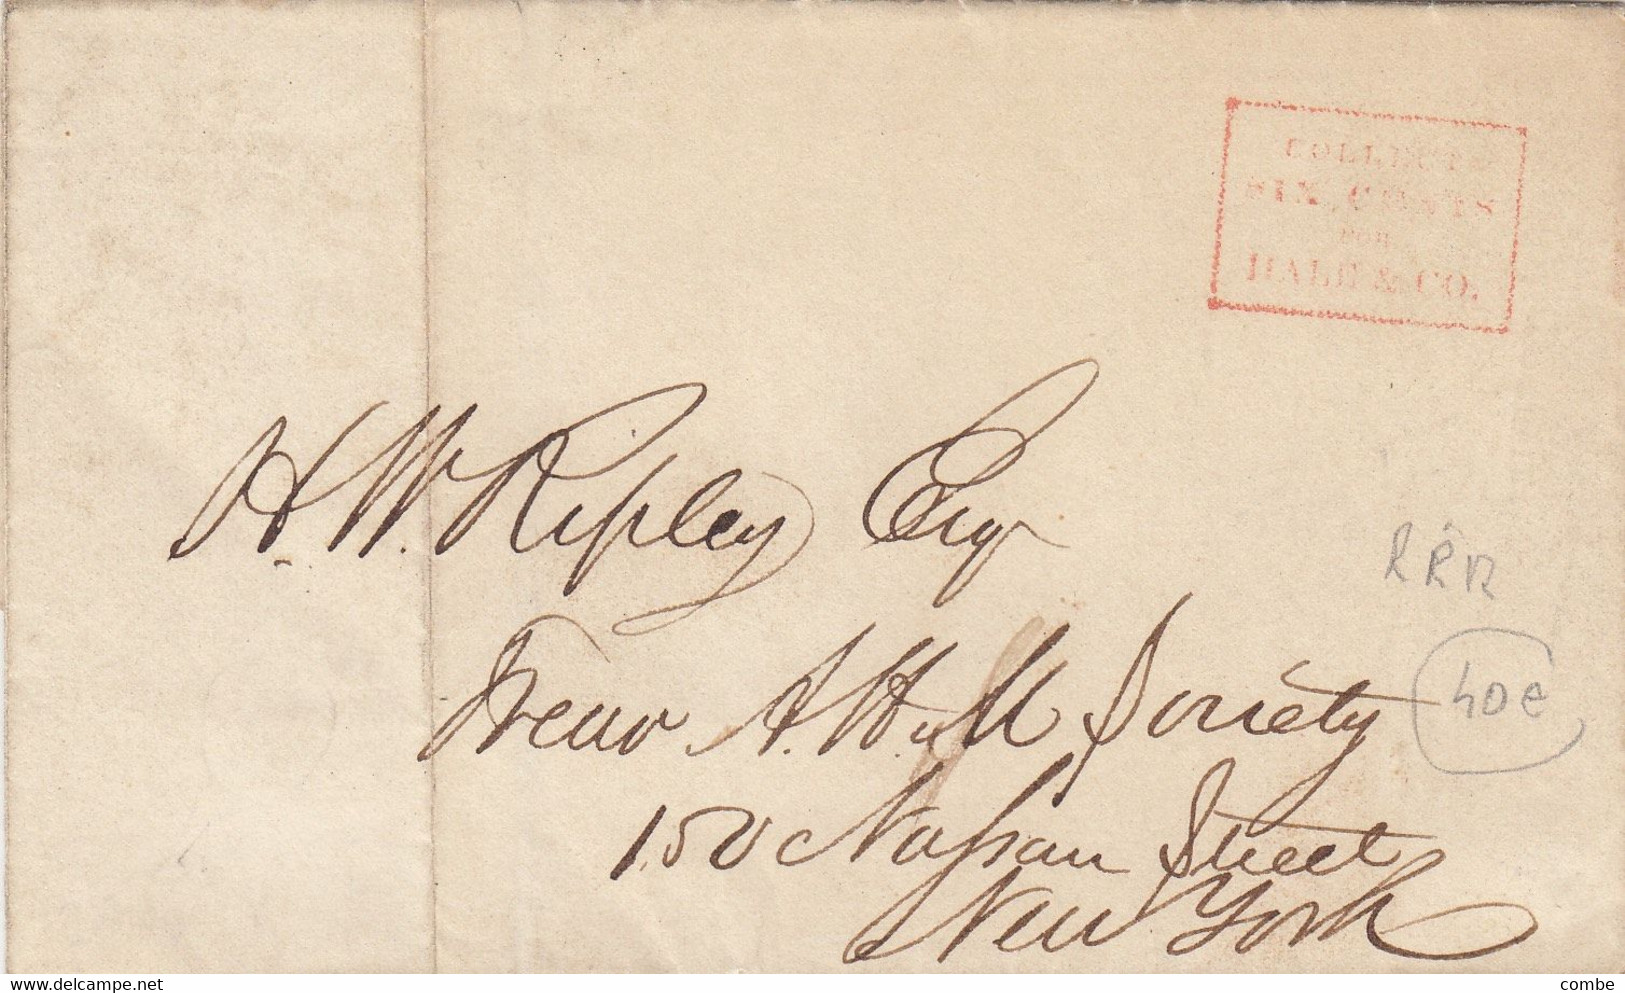 COLLECT
SIX CENTS
FOR
HALE & CO.
H. W. Ripley Esqr
Treasr A. H. M Society
150 Nassau Street
New York
RRR
40 e
delcampe.net
combe